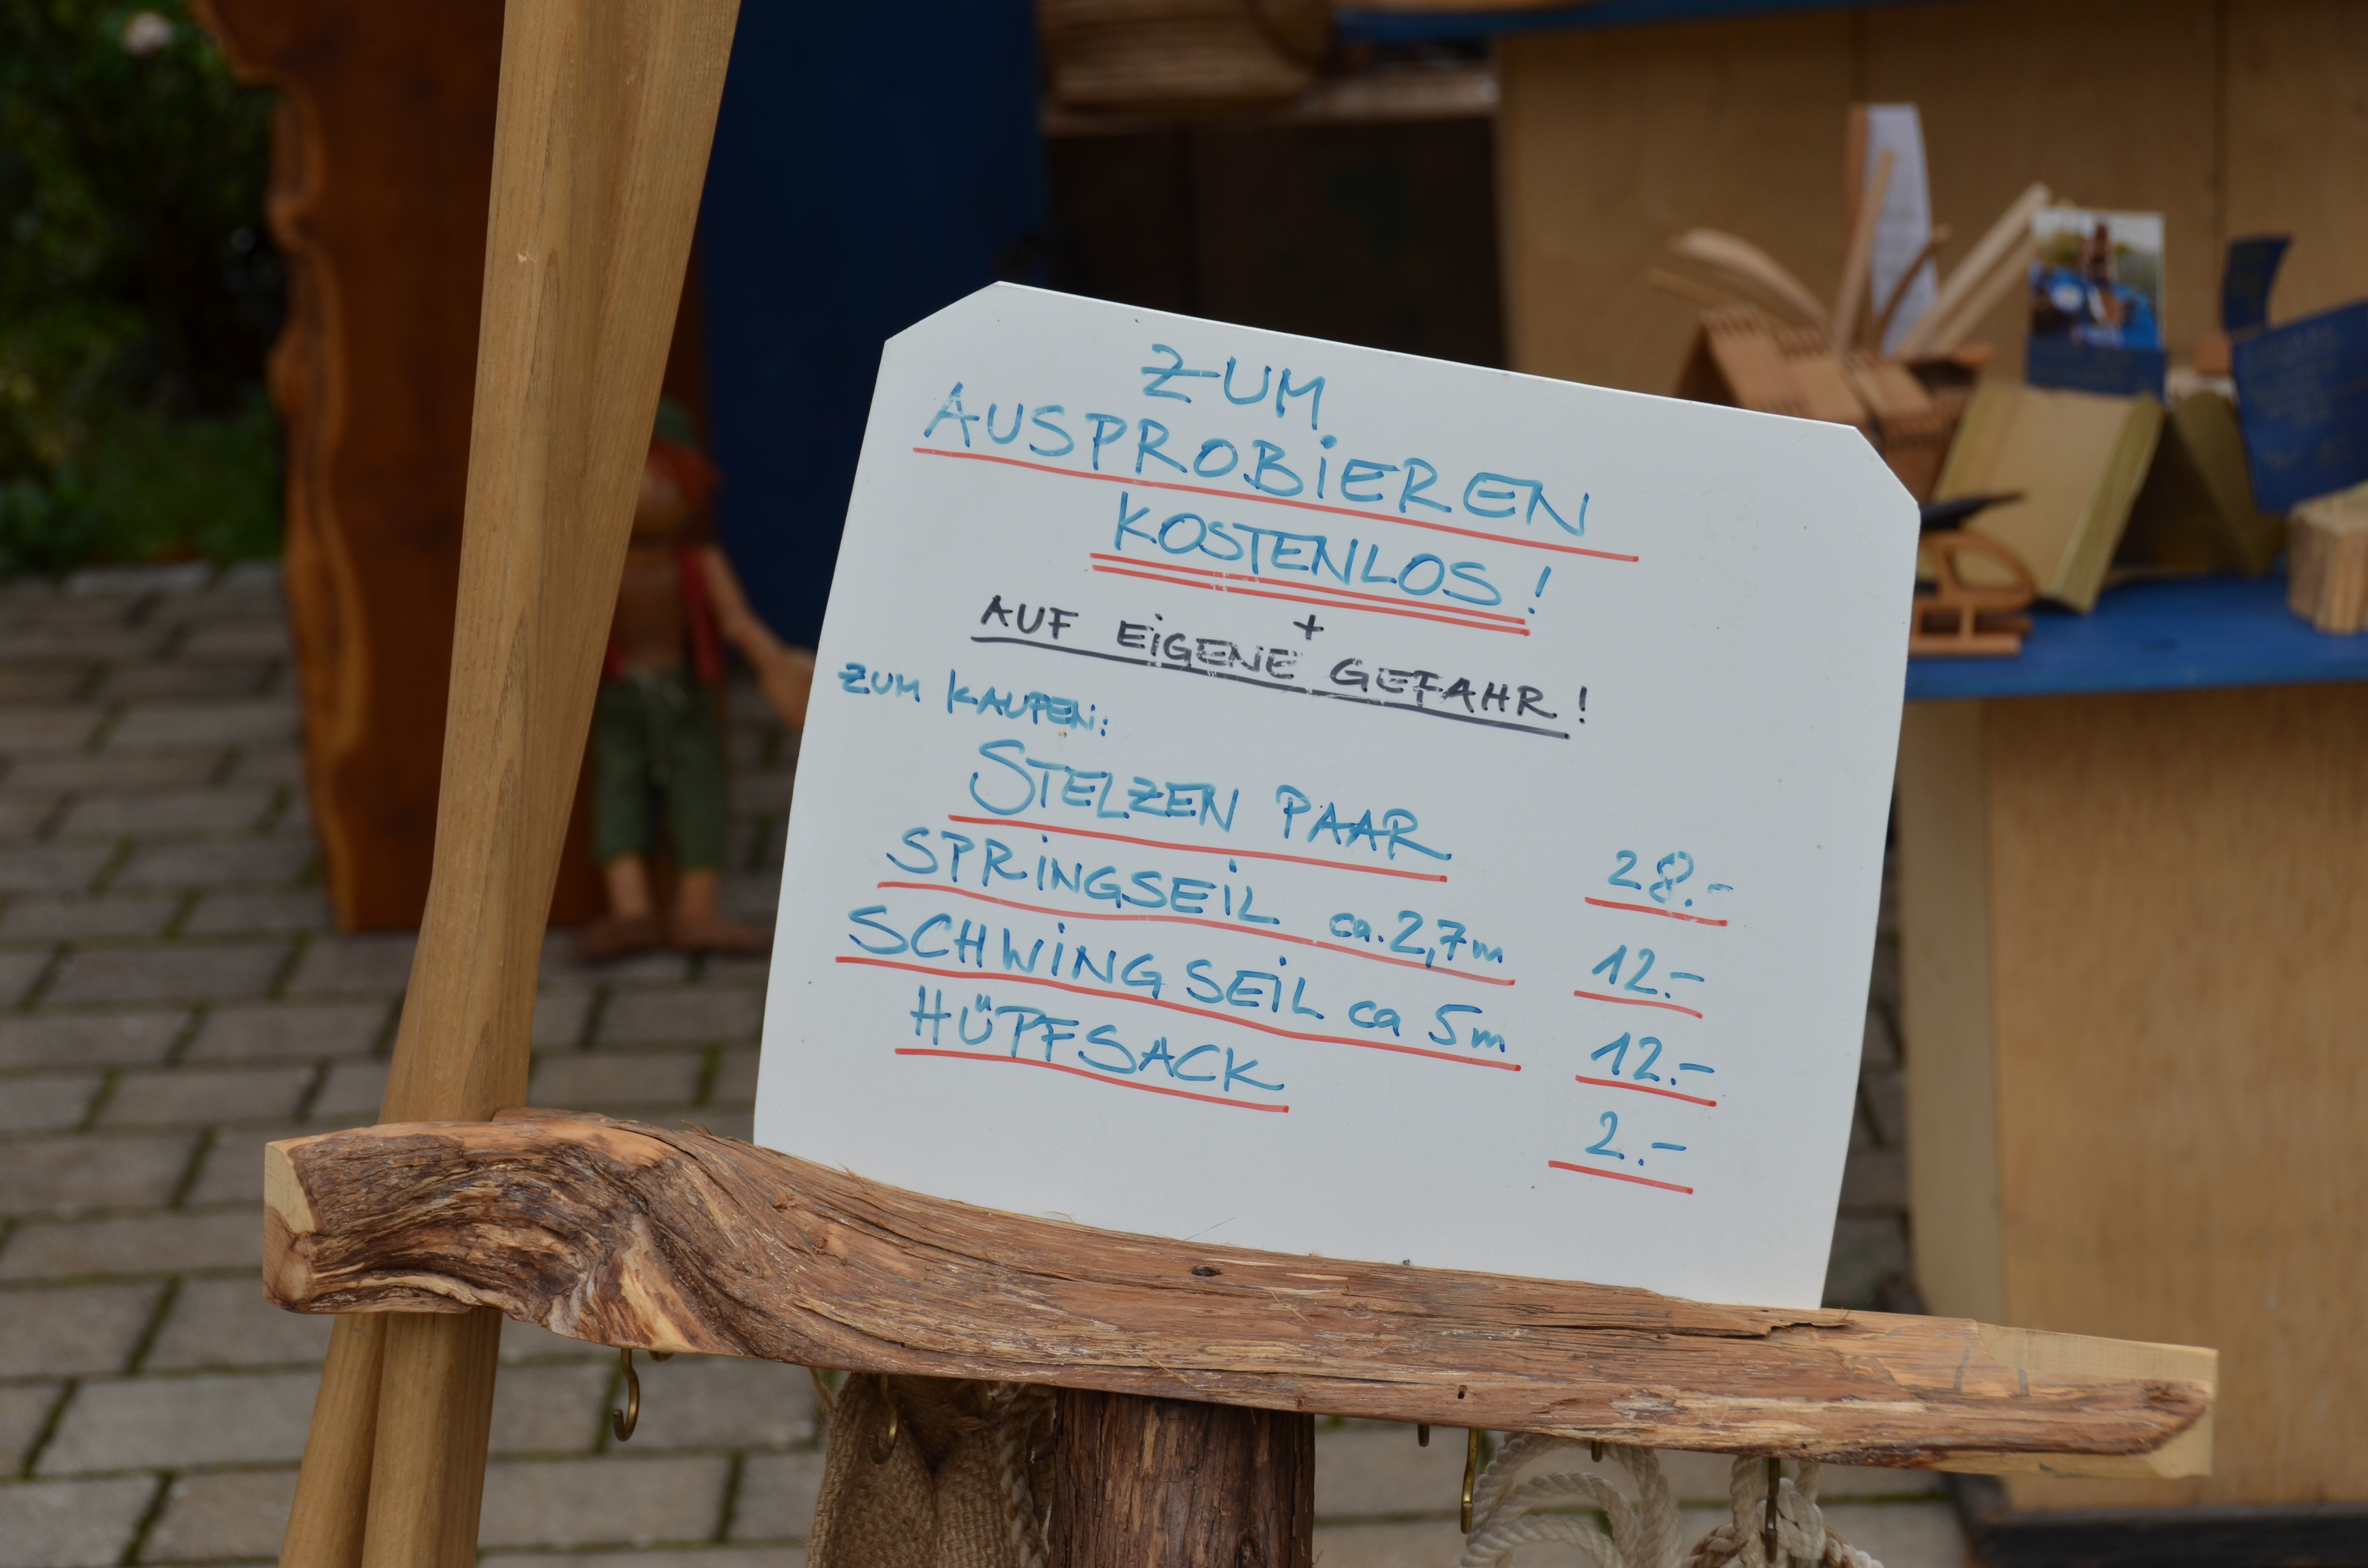 ZUM
AUSPROBIEREN
KOSTENLOS!
+
AUF EIGENE GEFAHR!
ZUM KAUFEN:
STELZEN PAAR 28.-
SPRINGSEIL ca. 2,7m 12.-
SCHWINGSEIL ca 5m 12.-
HÜPFSACK 2.-